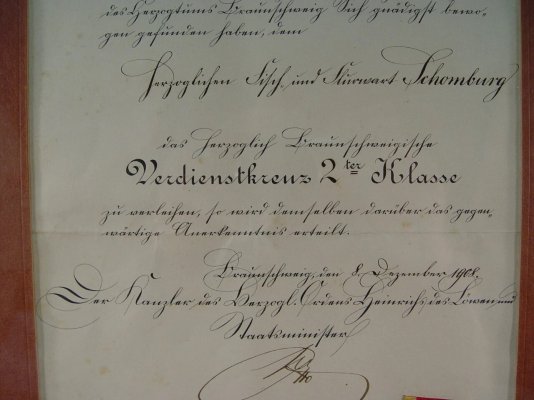 des Herzogtums Braunschweig Sich gnädigst bewo-
gen gefunden haben, dem
Herzoglichen Fisch- und Flurwart Schomburg
das Herzoglich Braunschweigische
Verdienstkreuz 2ter Klasse
zu verleihen, so wird demselben darüber das gegen-
wärtige Anerkenntnis erteilt.
Braunschweig, den 8. Dezember 1908.
Der Kanzler des Herzogl. Ordens Heinrichs des Löwen und
Staatsminister